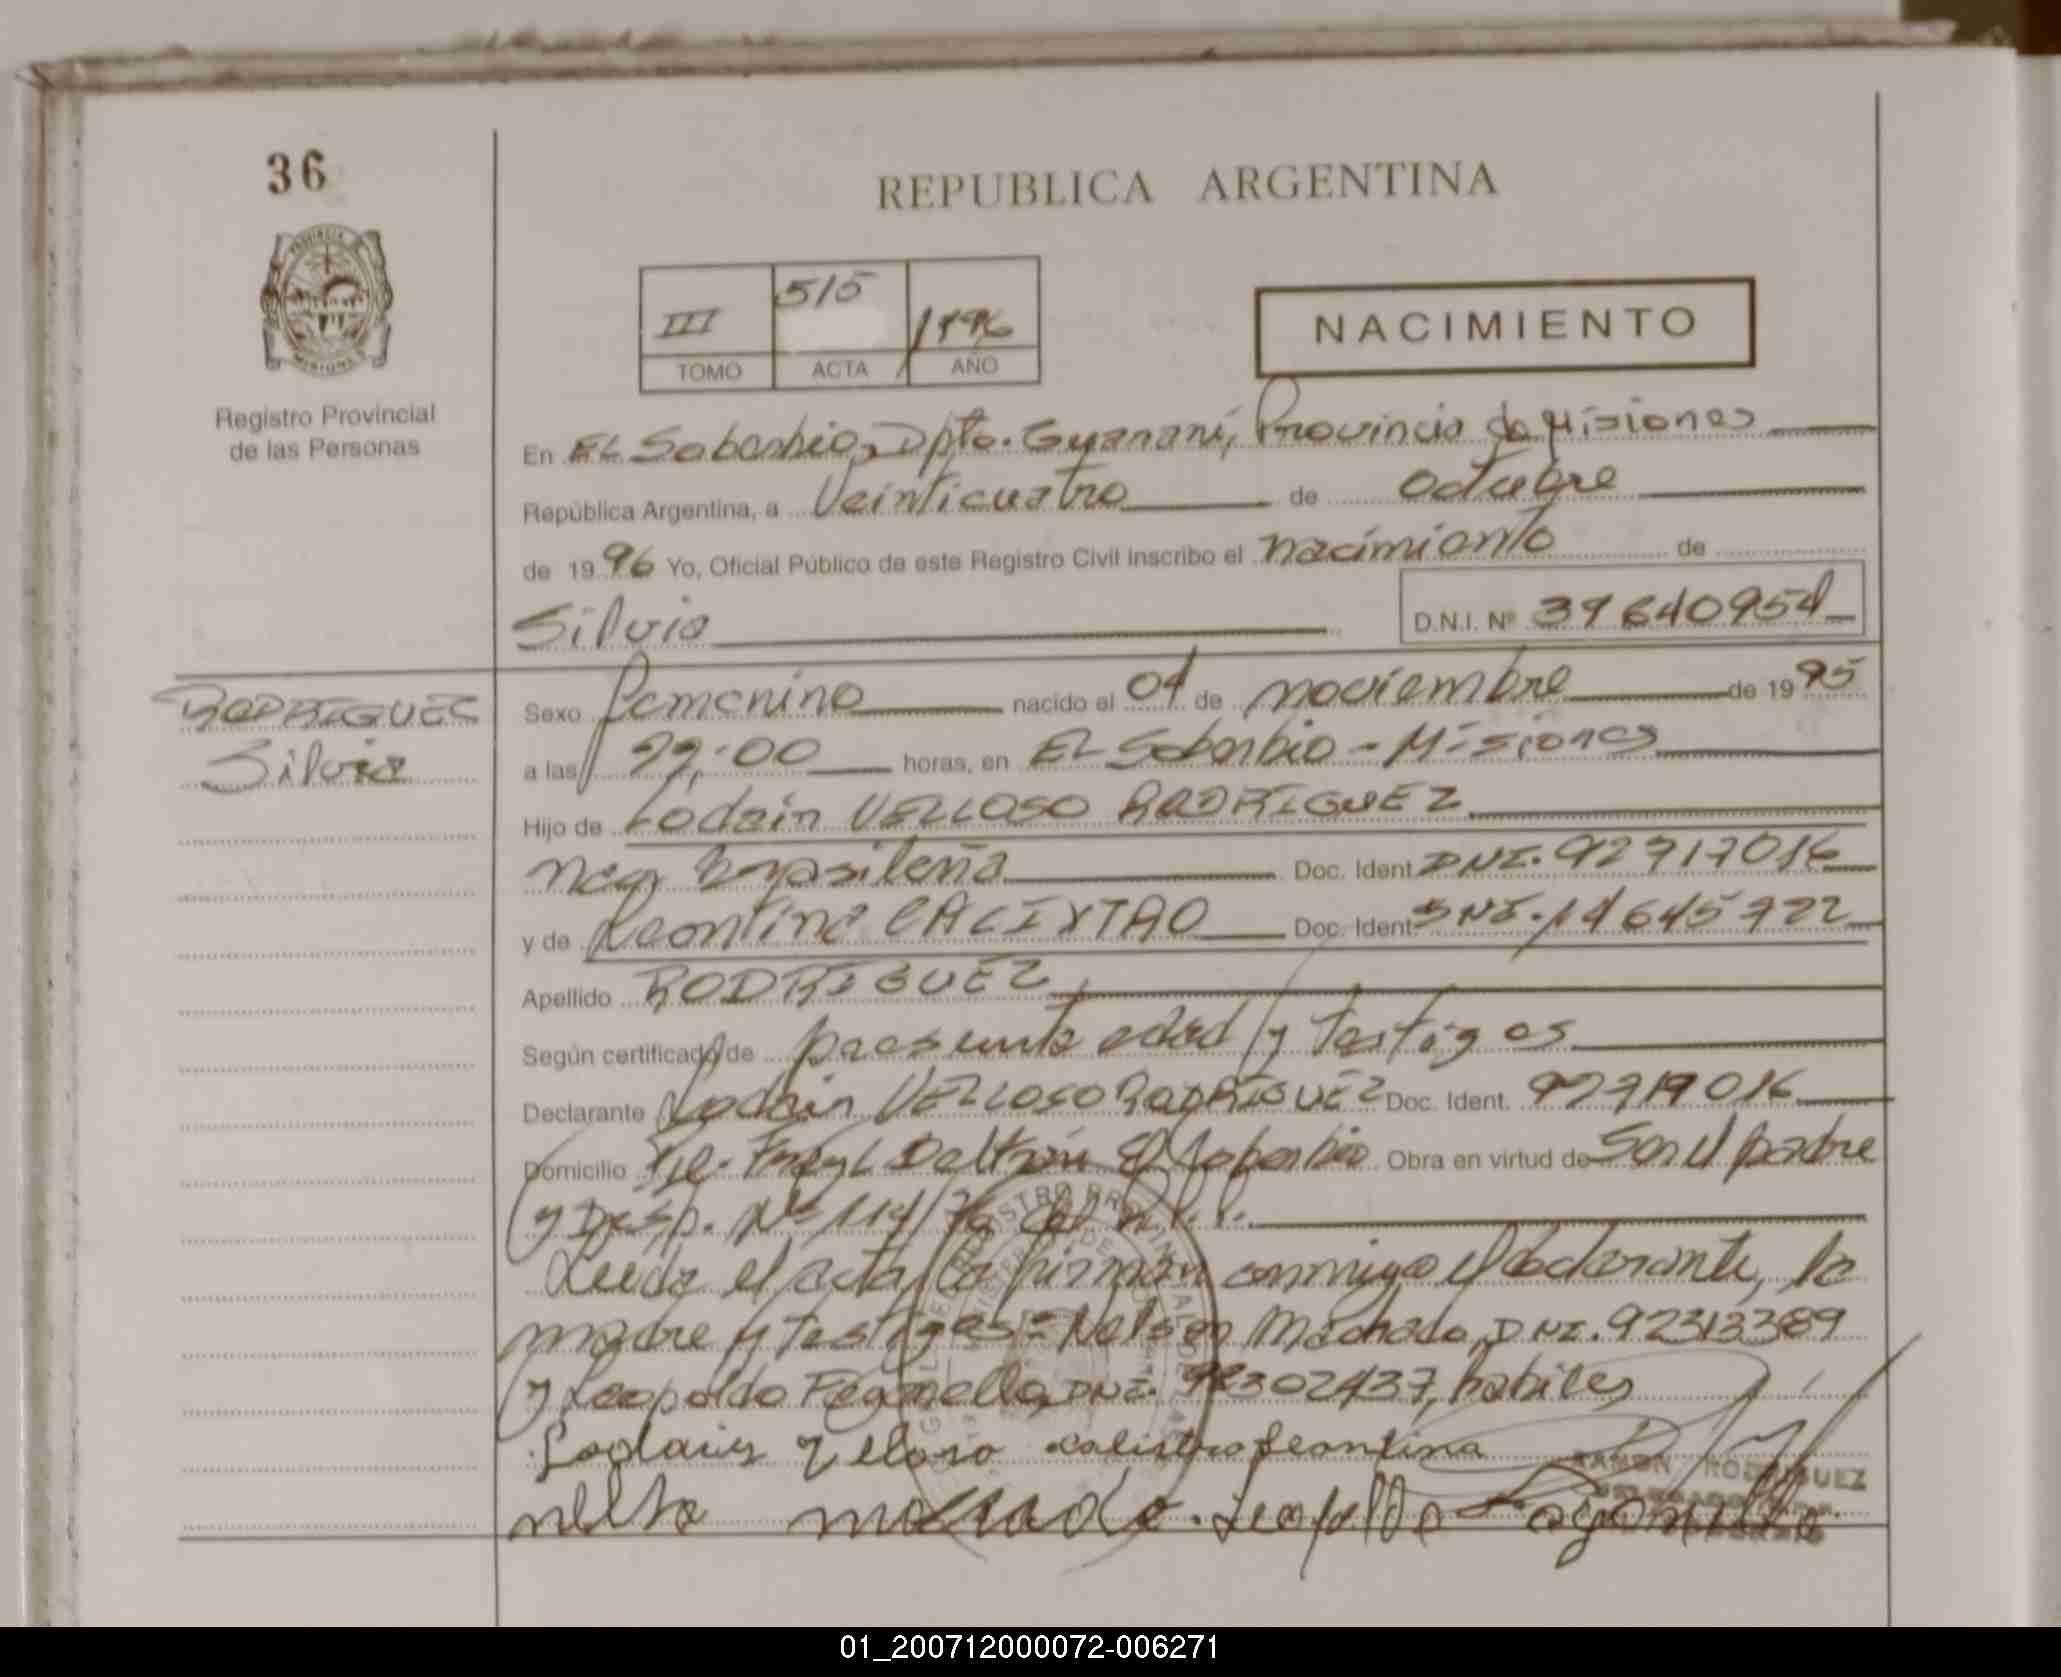 36
REPUBLICA ARGENTINA
III 515 1996
TOMO ACTA AÑO
NACIMIENTO
Registro Provincial
de las Personas
En EL Soberbio, Dpto. Guaraní, Provincia de Misiones
República Argentina, a Veinticuatro de octubre
de 1996 Yo, Oficial Público de este Registro Civil inscribo el nacimiento de
Silvia D.N.I. Nº 39640954
RODRIGUEZ
Silvia
Sexo femenino nacido el 04 de noviembre de 1995
a las 22:00 horas, en EL Soberbio - Misiones
Hijo de Lodain VELLOSO RODRIGUEZ
Nac. Brasileña Doc. Ident DNI. 92717016
y de Leontina CALIXTAO Doc. Ident DNI. 14645722
Apellido RODRIGUEZ
Según certificado de presunta edad y testigos
Declarante Lodain VELLOSO RODRIGUEZ Doc. Ident. 92717016
Domicilio El Soberbio Obra en virtud de Ser el padre
y Disp. Nº 114/76
Leida el acta, la firman conmigo el declarante, la
madre y testigos: Nelson Machado, DNI. 92313389
y Leopoldo Fagonello, DNI. 92302437, habiles
calistro leontina
machado. Leopoldo
RAMON RODRIGUEZ
01_200712000072-006271